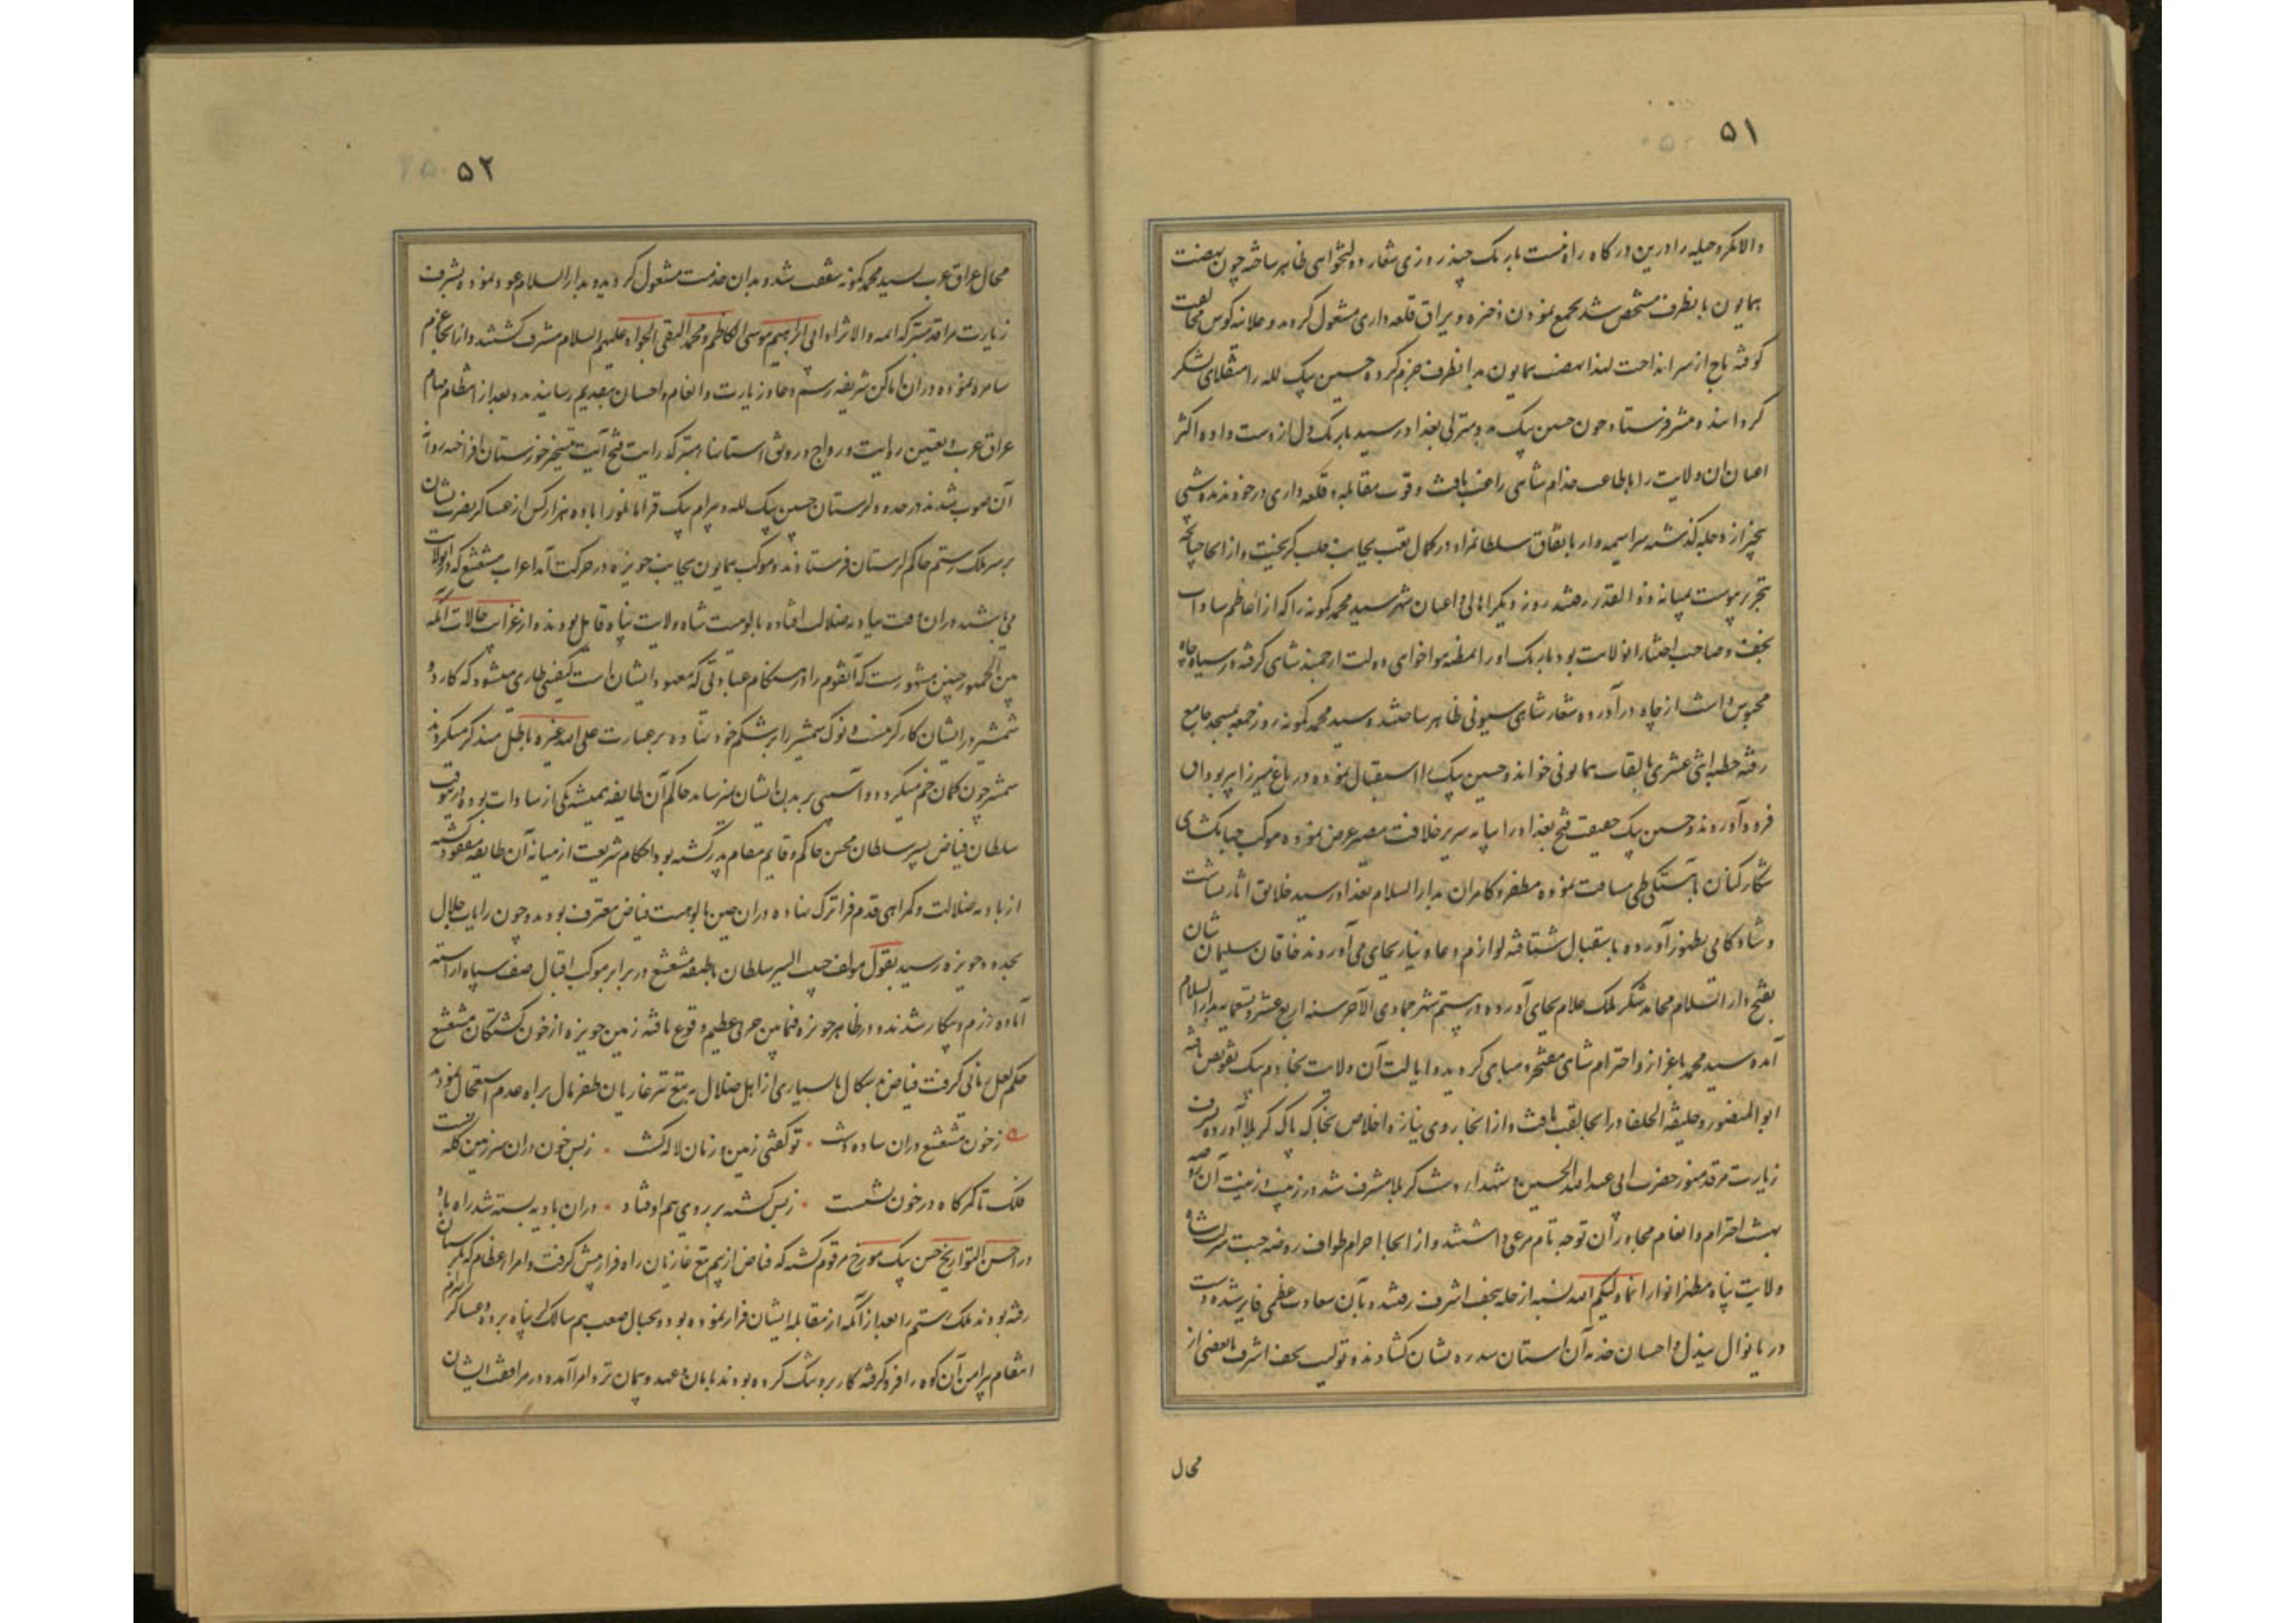 ۵۱
والا مکر و حیله را درین درگاه راه نیست باریک چند روزی شعار دولتخواهی ظاهر ساخته چون نهضت
همایون بانطرف مشخص شد بجمع نمودن ذخیره و یراق قلعه داری مشغول گردید و علانیه کوس مخالفت
کوفته تاج از سر انداخت لهذا نهضت همایون بدانطرف جزم کرده حسین بیک لله را منقلای لشکر
گردانیده پیشتر فرستاد چون حسین بیک بدو منزلی بغداد رسید باریک دل از دست داده اکثر
اعیان آن ولایت را باطاعت خدام شاهی راغب یافت و قوت مقابله و قلعه داری در خود ندیده شبی
بیخبر از دجله گذشته سراسیمه وار باتفاق سلطانمراد در کمال تعب بجانب حلب گریخت و از انجا چنانچه
بتحریر پیوست میانه ذوالقدر رفتند روز دیگر اهالی و اعیان شهر سید محمد کمونه را که از اعاظم سادات
نجف و صاحب اختیار انولایت بود باریک او را بمظنه هواخواهی دولت ارجمند شاهی گرفته در سیاه چاه
محبوس داشت از چاه در آورده شعار شاهی سیونی ظاهر ساختند و سید محمد کمونه روز جمعه بمسجد جامع
رفته خطبه اثنی عشری بالقاب همایونی خواند و حسین بیک را استقبال نموده در باغ میرزا پیر بوداق
فرود آوردند و حسین بیک حقیقت فتح بغداد را بپایه سریر خلافت مصیر عرض نموده موکب جهانگشای
شکار کنان باهستگی طی مسافت نموده مظفر و کامران بدارالسلام بغداد رسید خلایق آثار بشاشت
و شادکامی بظهور آورده باستقبال شتافته لوازم دعا و نیاز بجای می آوردند خاقان سلیمان شان
بفتح دارالسلام محامد شکر ملک علام بجای آورده در بیستم شهر جمادی الآخر سنه اربع عشر و تسعمایه بدارالسلام
آمده سید محمد باعزاز و احترام شاهی مفتخر و مباهی گردید و ایالت آن ولایت بخادم بیک تفویض یافته
ابو المنصور و خلیفة الخلفا در انجا لقب یافت و از انجا روی نیاز و اخلاص بخاک پاک کربلا آورده بشرف
زیارت مرقد منور حضرت ابی عبدالله الحسین و شهداء دشت کربلا مشرف شد در زیب و زینت آن روضه
بهشت احترام و انعام مجاوران توجه تام مرعی داشتند و از انجا احرام طواف روضه جنت مرتبت شاه
ولایت پناه مظهر انوار انما ولیکم الله بسته از حله بنجف اشرف رفتند و بآن سعادت عظمی فایز شده دست
دریا نوال ببذل و احسان خدمه آن استان سدره نشان گشادند و تولیت نجف اشرف با بعضی از
محال
۵۲
محال عراق عرب بسید محمد کمونه شفقت شد و بدان خدمت مشغول گردید و بدارالسلام عود نموده بشرف
زیارت مراقد متبرکه ائمه والا نژاد ابی ابراهیم موسی الکاظم و محمد التقی الجواد علیهم السلام مشرف گشتند و از انجا عزم
سامره نموده در ان اماکن شریفه رسم دعا و زیارت و انعام و احسان بتقدیم رسانیدند و بعد از انتظام مهام
عراق عرب و تعیین رعایت و رواج و رونق استانهاء متبرکه رایت فتح آیت بتسخیر خوزستان افراخته روانه
آن صوب شدند در حدود لرستان حسین بیک لله و بیرام بیک قرامانلو را با ده هزار کس از عساکر نصرت نشان
بر سر ملک رستم حاکم لرستان فرستادند و موکب همایون بجانب حویزه در حرکت آمد اعراب مشعشع که در انولایت
می باشند در ان وقت ببادیه ضلالت افتاده بالوهیت شاه ولایت پناه قایل بودند و از غرایب حالات آنکه
بین الجمهور چنین مشهورست که آنقوم را در هنگام عبادتی که معهود ایشان است کیفیتی طاری میشود که کارد و
شمشیر در ایشان کارگر نیست و نوک شمشیر را بر شکم خود نهاده بر عبارت علی الله و غیره باطل متذکر میگردند
شمشیر چون کمان خم میگردد و آسیبی بر بدن ایشان نمیرساند حاکم آن طایفه همیشه یکی از سادات بوده در انوقت
سلطان فیاض پسر سلطان محسن حاکم و قایم مقام پدر گشته بود احکام شریعت از میانه آن طایفه مفقود گشته
از بادیه ضلالت و گمراهی قدم فراترک نهاده در ان حین بالوهیت فیاض معترف بودند و چون رایات جلال
بحدود حویزه رسید بقول مولف حبیب السیر سلطان با طبقه مشعشع در برابر موکب اقبال صف سپاه آراسته
آماده رزم و پیکار شدند و در ظاهر حویزه فیمابین حربی عظیم وقوع یافته زمین حویزه از خون کشتگان مشعشع
حکم لعل رمانی گرفت فیاض بدسگال با بسیاری از اهل ضلال به تیغ تیز غازیان ظفر مال براه عدم استعجال نمودند
ز خون مشعشع دران ساده دشت ۰ تو گفتی زمین و زمان لاله گشت ۰ ز بس خون دران سرزمین گله بست
فلک تا کمرگاه در خون نشست ۰ ز بس کشته بر روی هم اوفتاد ۰ دران بادیه بسته شد راه باد
در احسن التواریخ حسن بیک مورخ مرقوم گشته که فیاض از بیم تیغ غازیان راه فرار پیش گرفت و امراء عظام که بلرستان
رفته بودند ملک رستم را بعد از آنکه از مقابله ایشان فرار نموده بود و بجبال صعب هم سالک پناه برده و عساکر بهرام
انتقام پیرامن آن کوه را فرو گرفته کار برو تنگ کرده بودند بامان و عهد و پیمان نزد امرا آمده در مرافقت ایشان